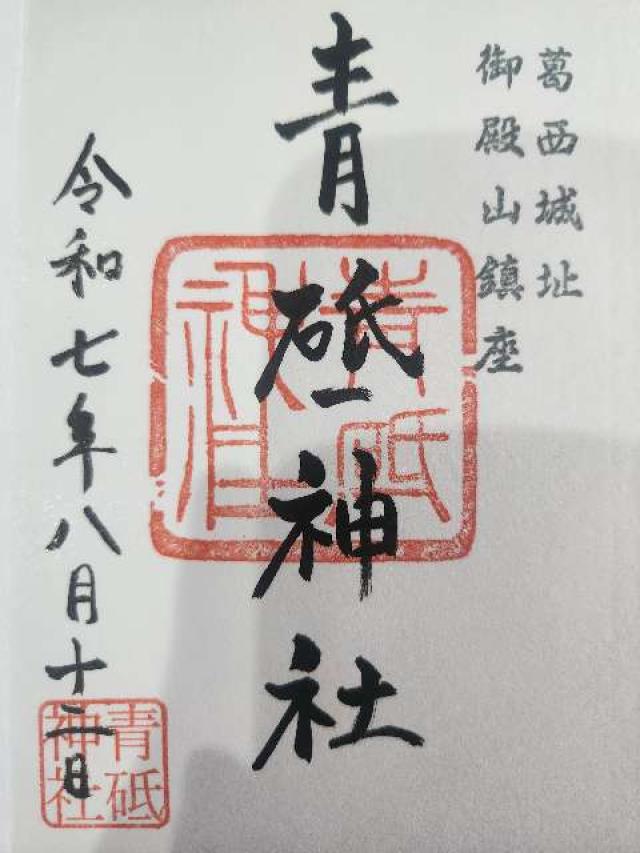 葛西城址
御殿山鎮座
青砥神社
令和七年八月十二日
青砥神社
青砥神社